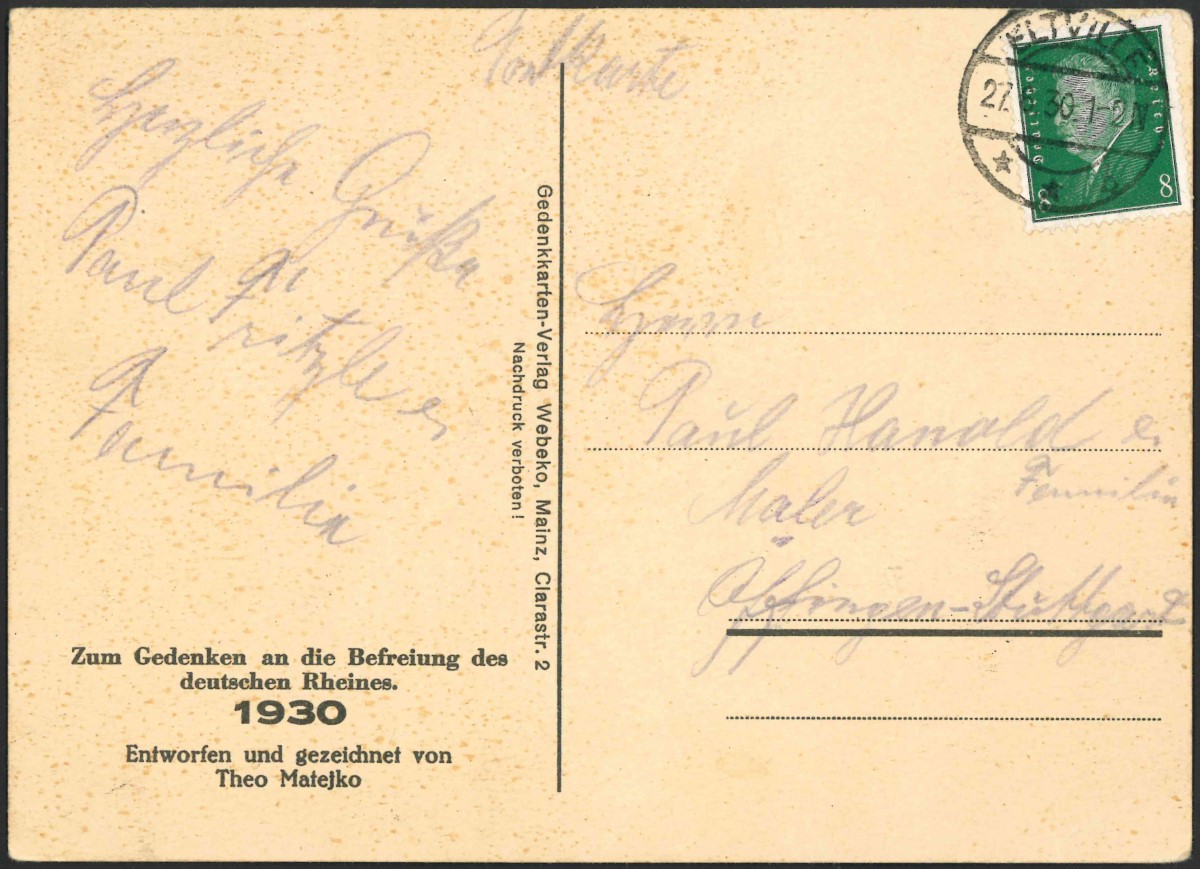 Postkarte
Herzliche Grüße
Paul
Familie
Gedenkkarten-Verlag Webeko, Mainz, Clarastr. 2
Nachdruck verboten!
Zum Gedenken an die Befreiung des
deutschen Rheines.
1930
Entworfen und gezeichnet von
Theo Matejko
ELTVILLE
27. 30. 1-2N
Deutsches Reich
8 8
Herrn
Paul Hanold
Maler Familie
Öffingen-Stuttgart